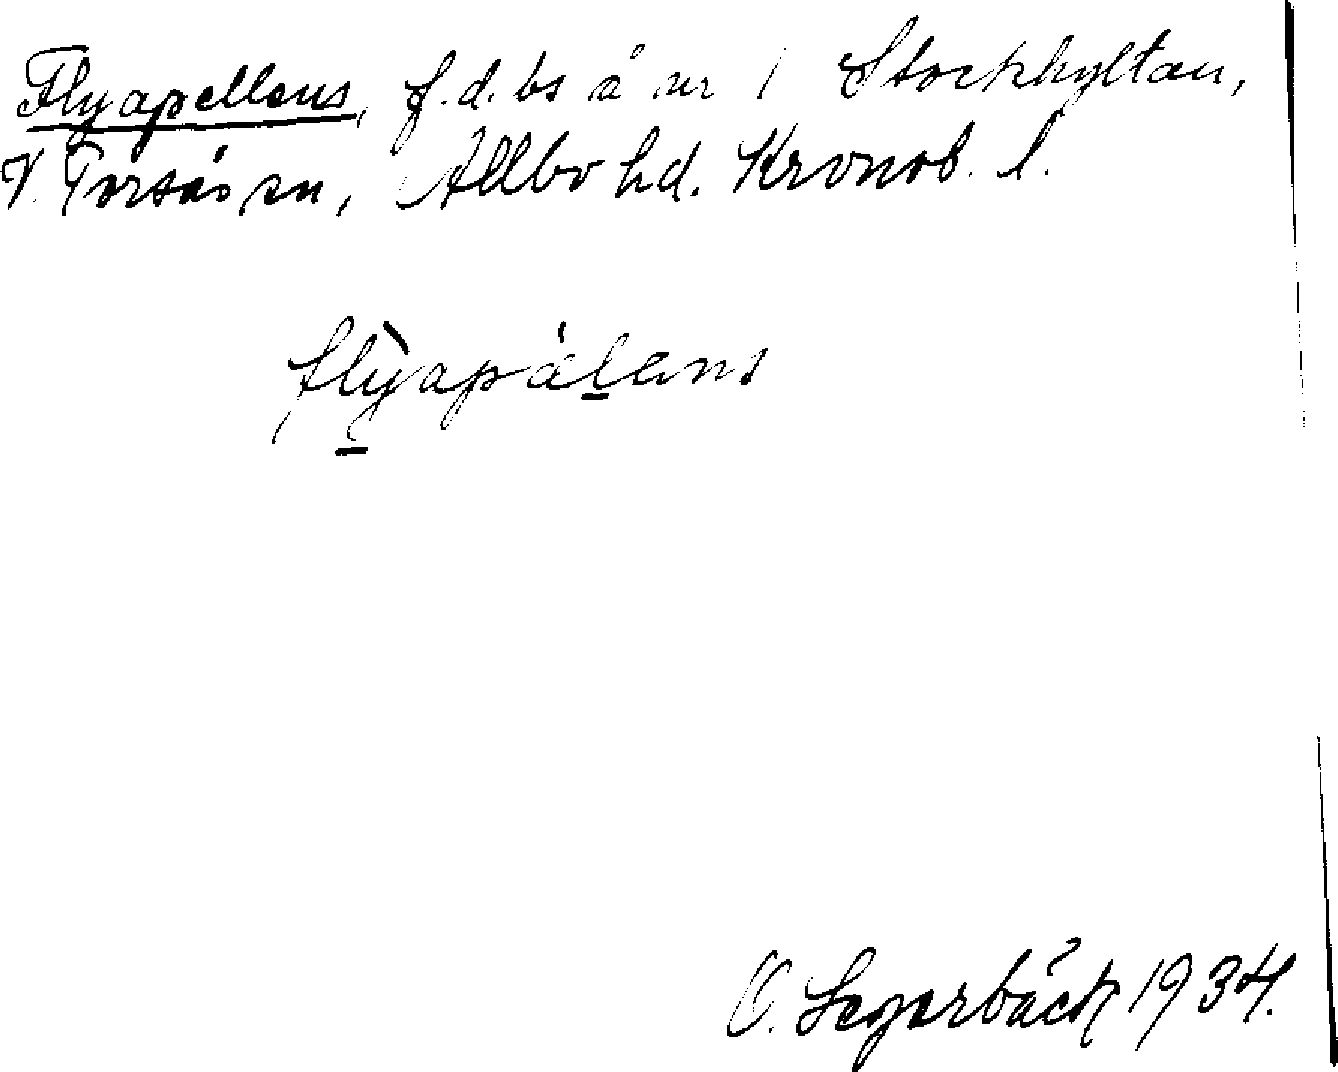 Flyapellens, f.d. bs å nr 1 Stockhyltan,
V. Torsås sn, Allbo hd. Kronob. l.
flỳapälens
O. Segerbäck 1934.